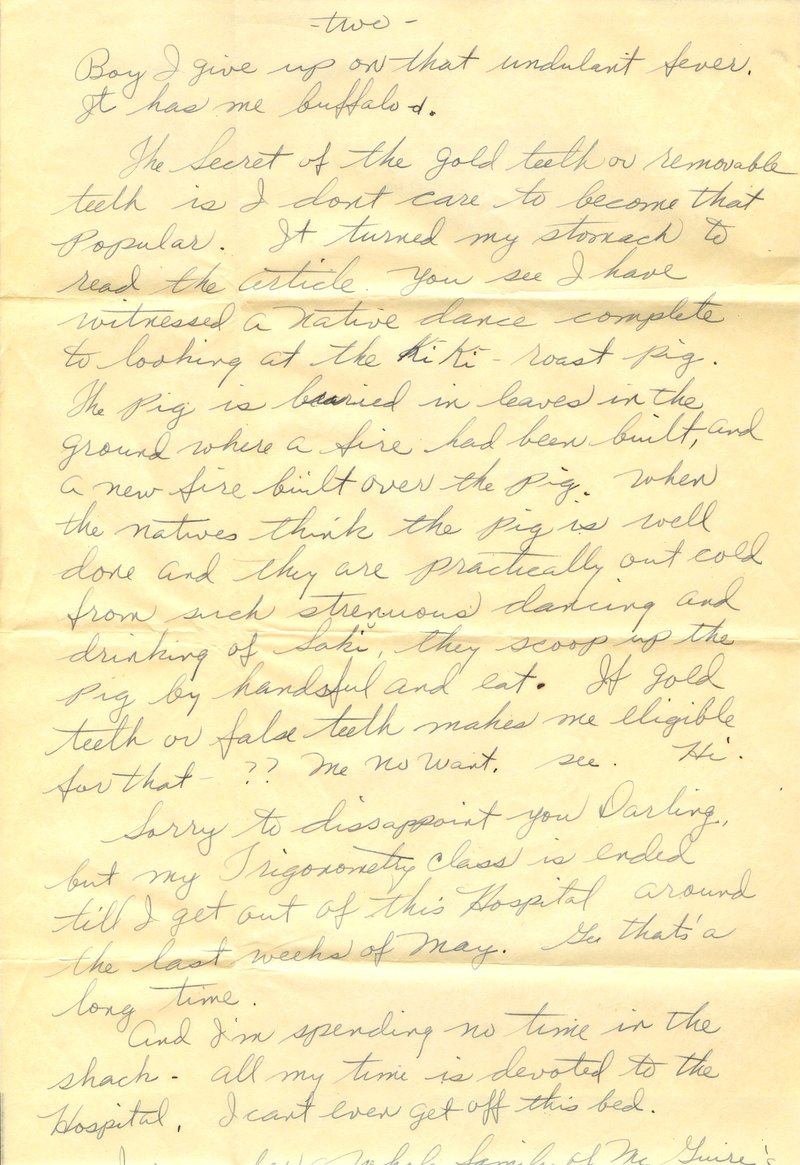 -two-
Boy I give up on that undulant fever.
It has me buffaloed.
The secret of the gold teeth or removable
teeth is I dont care to become that
Popular. It turned my stomach to
read the article. You see I have
witnessed a Native dance complete
to looking at the Ki Ki - roast pig.
The Pig is buried in leaves in the
ground where a fire had been built, and
a new fire built over the pig. When
the natives think the pig is well
done and they are practically out cold
from such strenuous dancing and
drinking of Saki, they scoop up the
Pig by handsful and eat. If gold
teeth or false teeth makes me eligible
for that - ?? Me No Want. see. Hi.
Sorry to dissappoint you Darling,
but my Trigonometry class is ended
till I get out of this Hospital around
the last weeks of May. Gee that's a
long time.
And I'm spending no time in the
shack - all my time is devoted to the
Hospital. I cant even get off this bed.
family of Mc Guire's